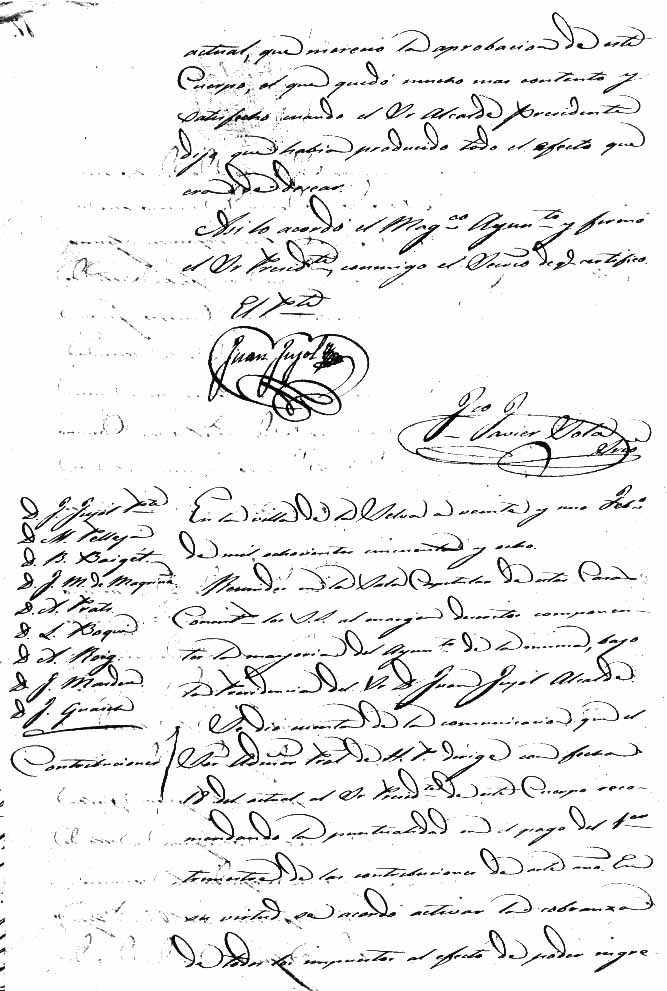 actual, que mereció la aprobacion de este
Cuerpo, el que quedó mucho mas contento y
satisfecho cuando el Sr Alcalde Presidente
dijo que habia producido todo el efecto que
era de desear.
Asi lo acordó el Mag.co Ayun.to y firmó
el Sr Presid.te conmigo el Secrio de q.e certifico.
El Pte
Juan Jujol
Fco J.
Javier Solá
Srio
D. J. Jujol Pte
D. M.
D. B. Baiget
D. J. M. de
D. A. Prats
D. L. Roqué
D. A. Roig
D. J.
D. J.
En la villa de la Selva a veinte y uno Feb.o
de mil ochocientos cincuenta y ocho.
Reunidos en la Sala Capitular de estas Casas
Consist.s los S.S. al margen descritos componen-
tes la mayoria del Ayun.to de la misma, bajo
la presidencia del Sr D. Juan Jujol Alcalde.
Se dió cuenta de la comunicacion que el
Contribuciones
Sor Admor Pral de H. P. dirige con fecha
18 del actual al Sr Presid.te de este Cuerpo reco-
mendando la puntualidad en el pago del 1.er
trimestre de las contribuciones de este año. En
su virtud se acordó activar la cobranza
de todos los impuestos al efecto de poder ingre